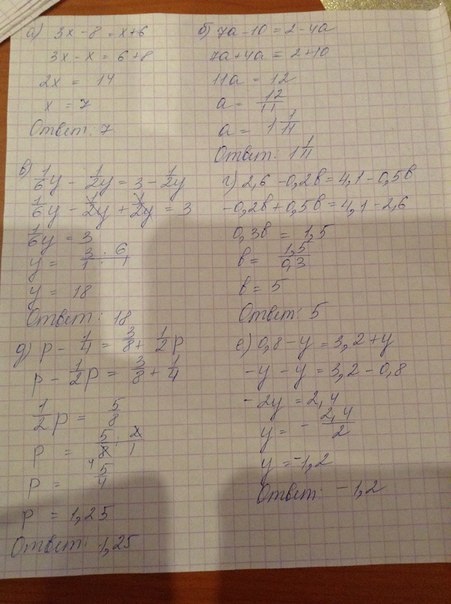 а) 3x - 8 = x + 6
3x - x = 6 + 8
2x = 14
x = 7
Ответ: 7
б) 7a - 10 = 2 - 4a
7a + 4a = 2 + 10
11a = 12
a = 12/11
a = 1 1/11
Ответ: 1 1/11
в) 1/6 y - 1/2 y = 3 - 1/2 y
1/6 y - 1/2 y + 1/2 y = 3
1/6 y = 3
y = 3/1 · 6/1
y = 18
Ответ: 18
г) 2,6 - 0,2в = 4,1 - 0,5в
-0,2в + 0,5в = 4,1 - 2,6
0,3в = 1,5
в = 1,5/0,3
в = 5
Ответ: 5
д) p - 1/4 = 3/8 + 1/2 p
p - 1/2 p = 3/8 + 1/4
1/2 p = 5/8
p = 5/8 · 2/1
p = 5/4
p = 1,25
Ответ: 1,25
е) 0,8 - y = 3,2 + y
-y - y = 3,2 - 0,8
-2y = 2,4
y = - 2,4/2
y = -1,2
Ответ: -1,2